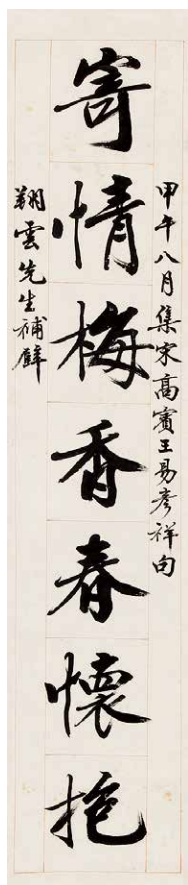 甲午八月集宋高賓王易彥祥句
寄情梅香春懷抱
翔雲先生補壁